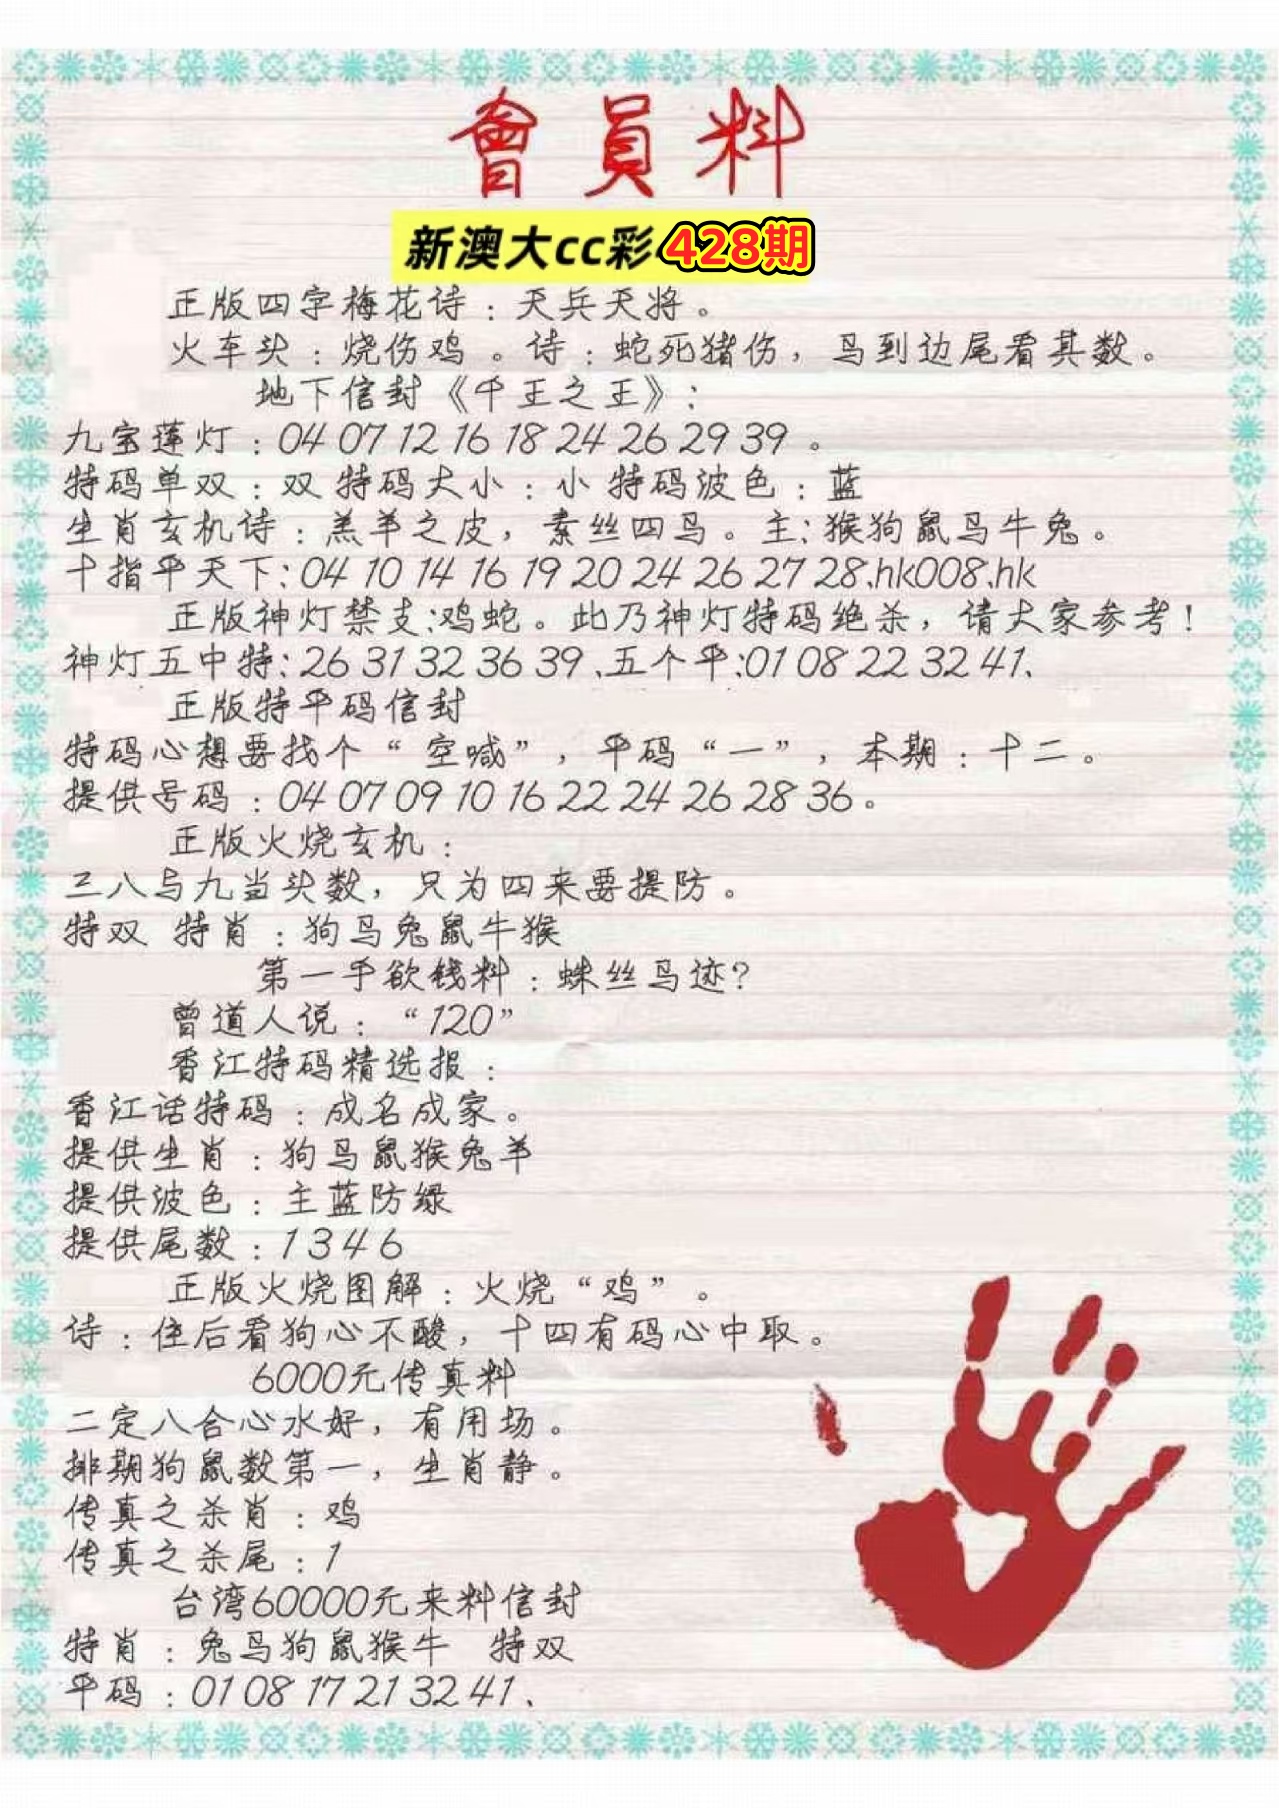 會員料
新澳大cc彩428期
正版四字梅花诗：天兵天将。
火车头：烧伤鸡。诗：蛇死猪伤，马到边尾看其数。
地下信封《千王之王》：
九宝莲灯：04 07 12 16 18 24 26 29 39 。
特码单双：双 特码大小：小 特码波色：蓝
生肖玄机诗：羔羊之皮，素丝四马。主：猴狗鼠马牛兔。
十指平天下：04 10 14 16 19 20 24 26 27 28.hk008.hk
正版神灯禁支:鸡蛇。此乃神灯特码绝杀，请大家参考！
神灯五中特：26 31 32 36 39 、五个平：01 08 22 32 41、
正版特平码信封
特码心想要找个“空喊”，平码“一”，本期：十二。
提供号码：04 07 09 10 16 22 24 26 28 36。
正版火烧玄机：
三八与九当头数，只为四来要提防。
特双 特肖：狗马兔鼠牛猴
第一手欲钱料：蛛丝马迹？
曾道人说：“120”
香江特码精选报：
香江话特码：成名成家。
提供生肖：狗马鼠猴兔羊
提供波色：主蓝防绿
提供尾数：1 3 4 6
正版火烧图解：火烧“鸡”。
诗：住后看狗心不酸，十四有码心中取。
6000元传真料
二定八合心水好，有用场。
排期狗鼠数第一，生肖静。
传真之杀肖：鸡
传真之杀尾：1
台湾60000元来料信封
特肖：兔马狗鼠猴牛 特双
平码：01 08 17 21 32 41、